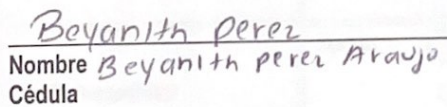 Beyanith perez
Nombre Beyanith perez Araujo
Cédula